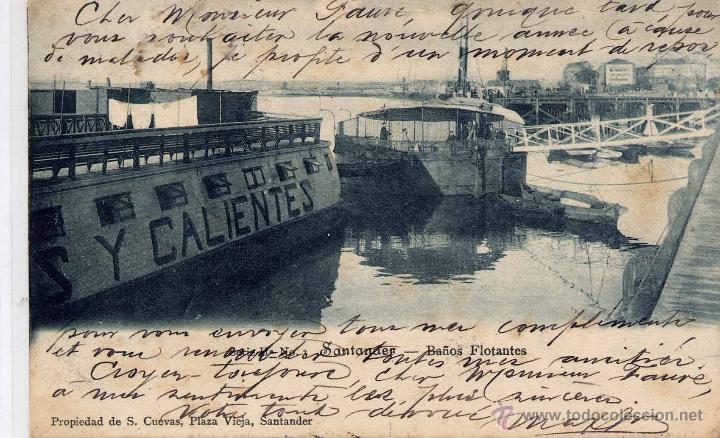 Cher Monsieur Fauré, quoique tard, pour
vous souhaiter la nouvelle année (à cause
de malades, je profite d'un moment de repos
S Y CALIENTES
pour vous envoyer tous mes compliments
Serie No Santander — Baños Flotantes
et vous renouveler toutes mes amitiés.
Croyez toujours, cher Monsieur Fauré,
à mes sentiments les plus sincères.
Votre tout dévoué
Propiedad de S. Cuevas, Plaza Vieja, Santander
www.todocoleccion.net